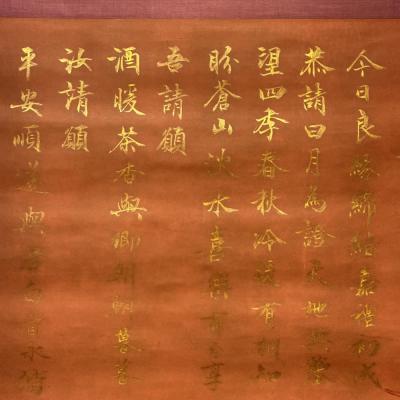 今日良緣締結嘉禮初成
恭請日月為證天地為鑒
望四季春秋冷暖有相知
盼蒼山淡水喜樂有分享
吾請願
酒暖茶香與卿朝朝暮暮
汝請願
平安順遂與君白首永偕